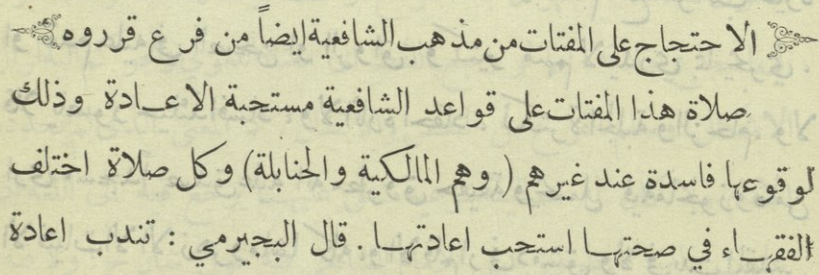 الاحتجاج على المفتات من مذهب الشافعية ايضاً من فرع قرروه
صلاة هذا المفتات على قواعد الشافعية مستحبة الاعادة وذلك
لوقوعها فاسدة عند غيرهم ( وهم المالكية والحنابلة) وكل صلاة اختلف
الفقهاء في صحتها استحب اعادتها . قال البجيرمي : تندب اعادة